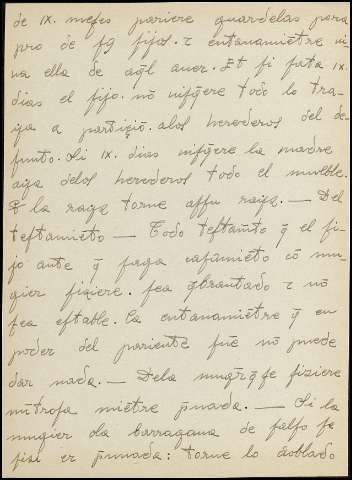 de IX. meſes pariere guardelas para
pro de ſꝯ fijos. ⁊ entanamiētre ui-
ua ella de aq̄l auer. Et ſi faſta IX.
dias el fijo. nō uiſq̄ere todo lo tra-
ya a partiçiō. alos herederos del de-
funto. Si IX. dias uiſq̄ere la madre
aya delos herederos todo el mueble.
⁊ la rayz torne aſſu rayz. — Del
teſtamiēto — Todo teſtam̄to q̄ el fi-
jo ante q̄ faga caſamiēto cō mu-
gier fiziere. ſea q̄brantado ⁊ nō
ſea eſtable. Ca entanamiētre q̄ en
poder del pariente fuē nō puede
dar nada. — Dela mug̅r q̄ſe fiziere
mītroſa miētre p̄nnada. — Si la
mugier ola barragana de falſo ſe
fizi er p̄nnada: torne lo doblado